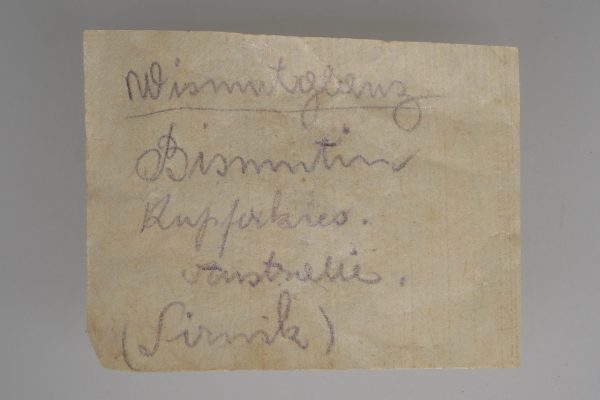 Wismutglanz
Bismutin
Kupferkies.
Australië.
(Sirnik)